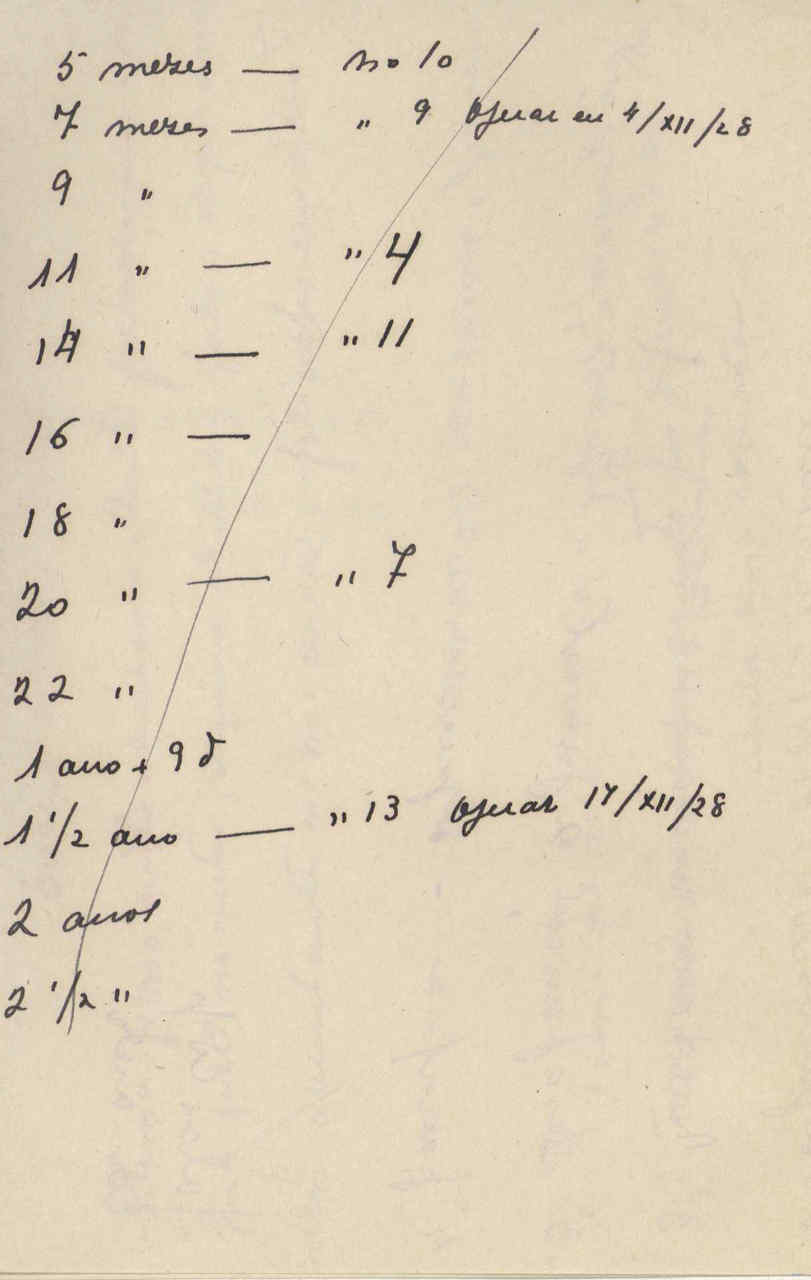 5 mezes — no 10
7 mezes — " 9 Operar em 4/XII/28
9 "
11 " — " 4
14 " — " 11
16 " —
18 "
20 " — " 7
22 "
1 ano + 9 d
1 1/2 ano — " 13 Operar 17/XII/28
2 anos
2 1/2 "